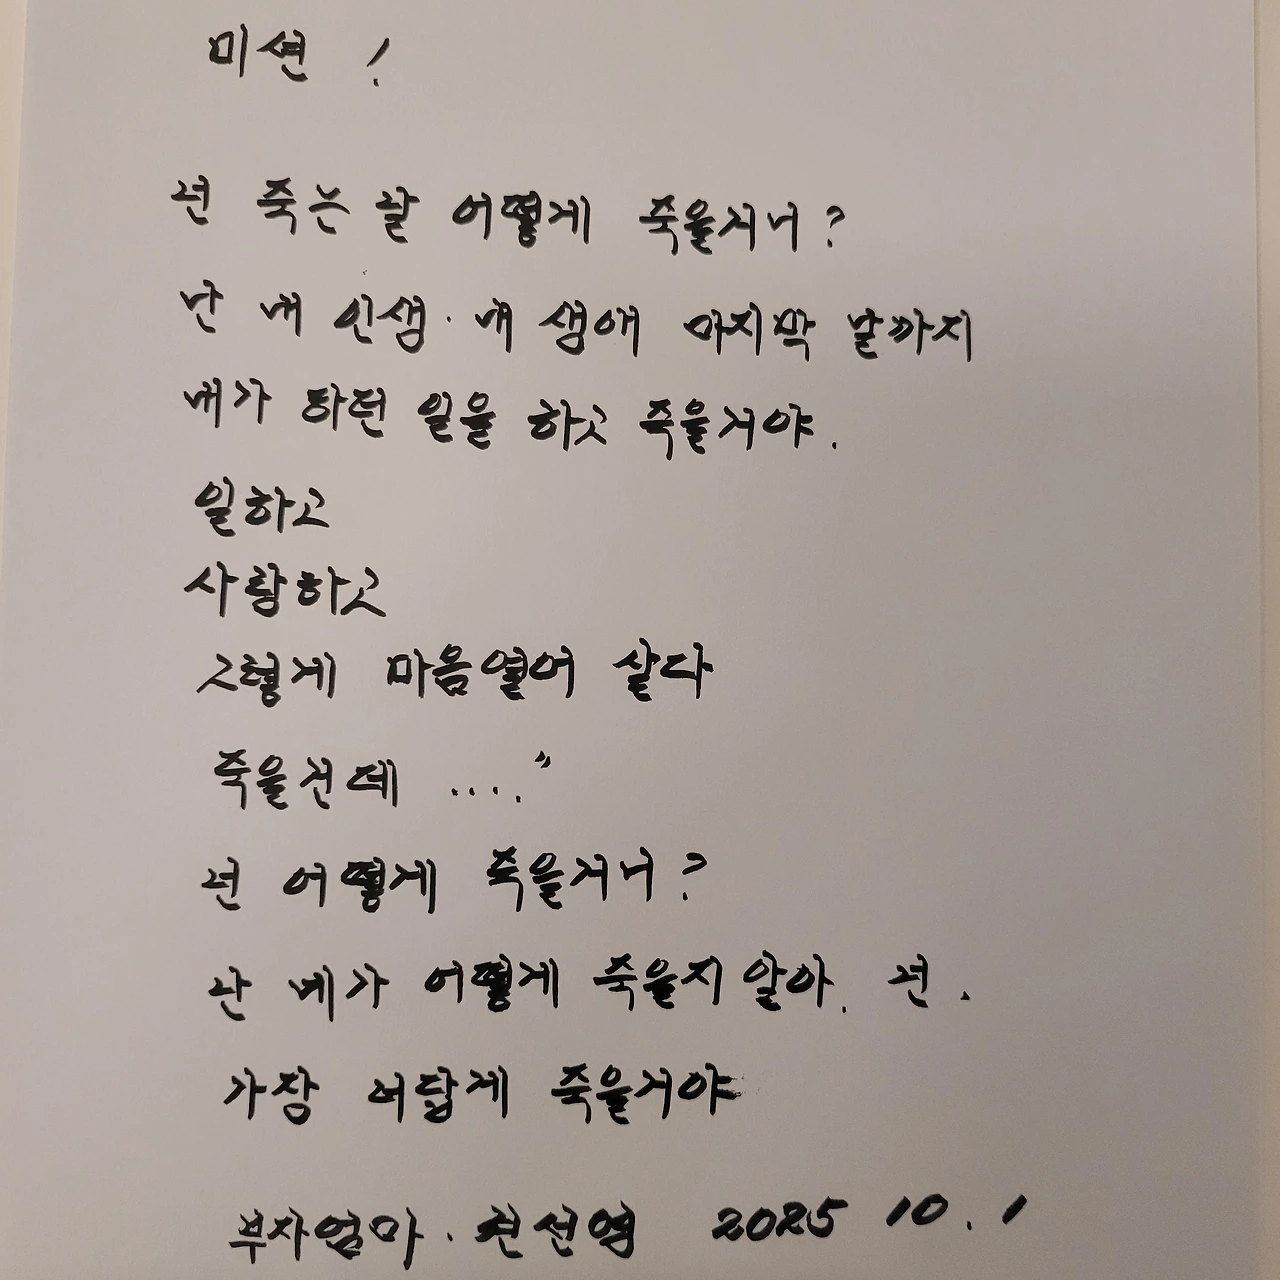 미션 !
넌 죽는 날 어떻게 죽을거니?
난 내 인생. 내 생애 마지막 날까지
내가 하던 일을 하고 죽을거야.
일하고
사랑하고
그렇게 마음열어 살다
죽을건데 ....."
넌 어떻게 죽을거니?
난 네가 어떻게 죽을지 알아. 넌.
가장 너답게 죽을거야
부자엄마. 선영 2025 10. 1